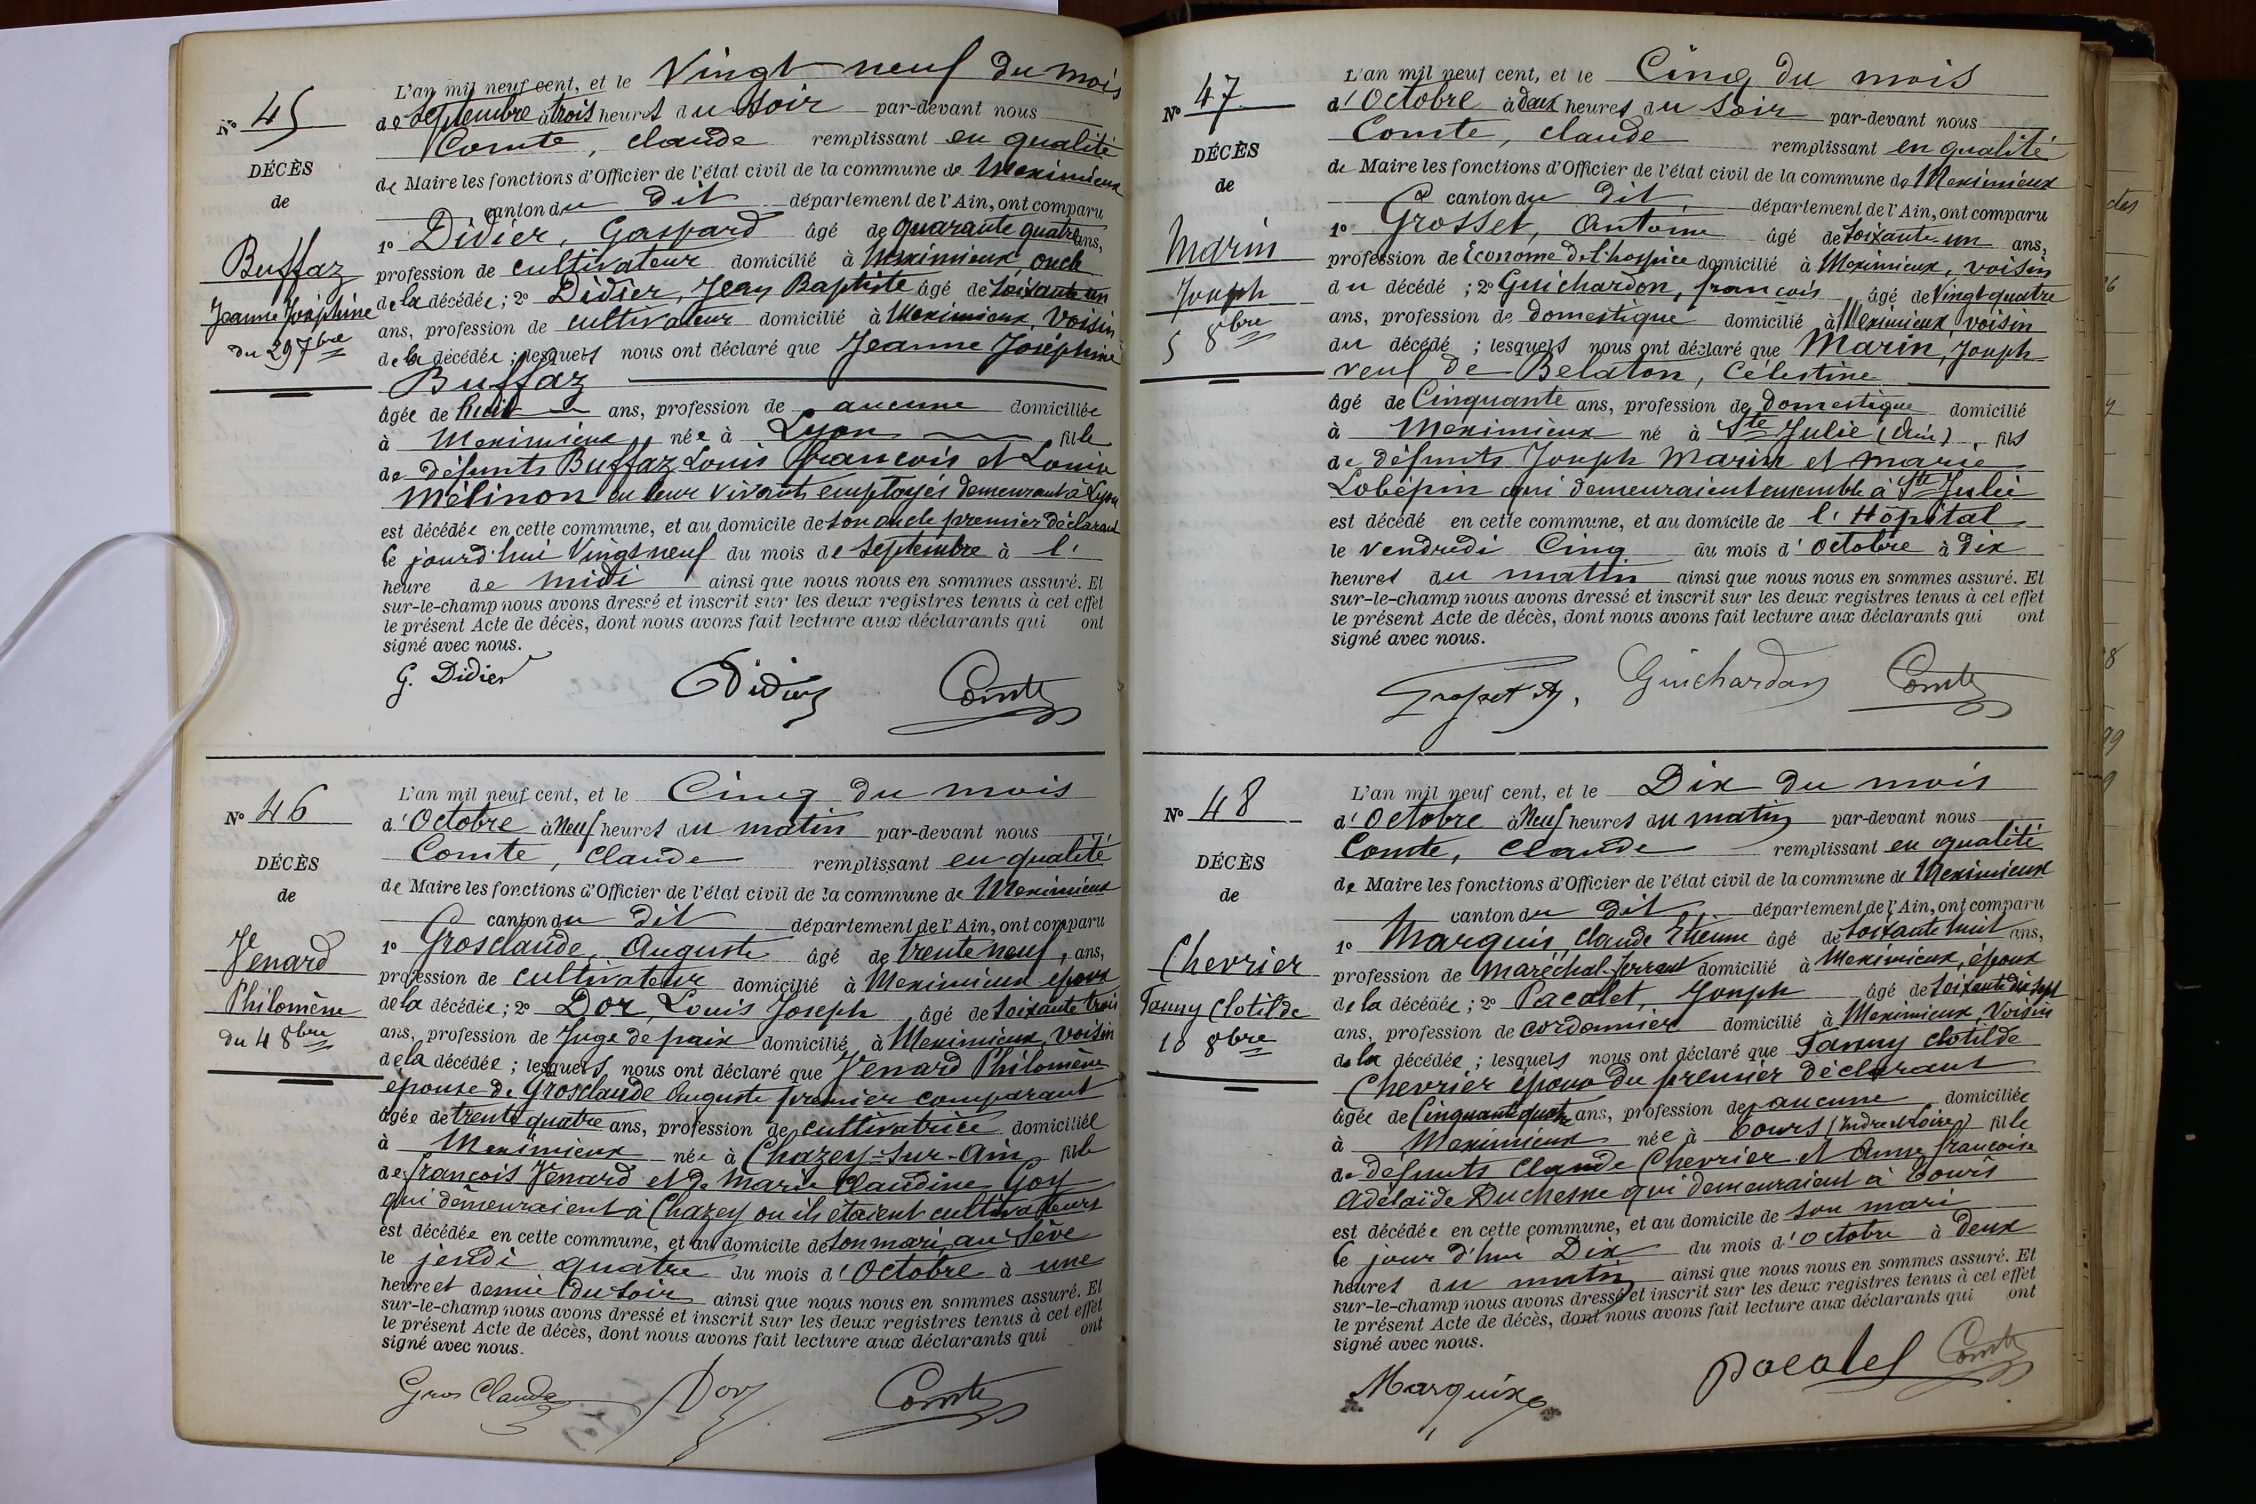 N° 45
DÉCÈS
de
Buffaz
Jeanne Joséphine
du 29 7bre
L'an mil neuf cent, et le Vingt neuf du mois
de Septembre à trois heures du Soir par-devant nous
Comte, Claude remplissant en qualité
de Maire les fonctions d'Officier de l'état civil de la commune de Meximieux
canton du dit département de l'Ain, ont comparu
1° Didier, Gaspard âgé de quarante quatre ans,
profession de cultivateur domicilié à Meximieux oncle
de la décédée; 2° Didier, Jean Baptiste âgé de Soixante un
ans, profession de cultivateur domicilié à Meximieux, Voisin
de la décédée; lesquels nous ont déclaré que Jeanne Joséphine
Buffaz
âgée de huit ans, profession de aucune domiciliée
à Meximieux née à Lyon fille
de défunts Buffaz, Louis François et Louise
Mélinon en leur vivants employés demeurant à Lyon
est décédée en cette commune, et au domicile de son oncle premier déclarant
le jourd'hui Vingt neuf du mois de Septembre à l'
heure de midi ainsi que nous nous en sommes assuré. Et
sur-le-champ nous avons dressé et inscrit sur les deux registres tenus à cet effet
le présent Acte de décès, dont nous avons fait lecture aux déclarants qui ont
signé avec nous.
G. Didier Didier Comte
N° 46
DÉCÈS
de
Venard
Philomène
du 4 8bre
L'an mil neuf cent, et le Cinq du mois
d'Octobre à Neuf heures du matin par-devant nous
Comte, Claude remplissant en qualité
de Maire les fonctions d'Officier de l'état civil de la commune de Meximieux
canton du dit département de l'Ain, ont comparu
1° Grosclaude, Auguste âgé de trente neuf, ans,
profession de cultivateur domicilié à Meximieux époux
de la décédée; 2° Dor, Louis Joseph âgé de Soixante trois
ans, profession de Juge de paix domicilié à Meximieux, Voisin
de la décédée; lesquels nous ont déclaré que Venard Philomène
épouse de Grosclaude Auguste premier comparant
âgée de trente quatre ans, profession de cultivatrice domiciliée
à Meximieux née à Chazey-Sur-Ain fille
de François Venard et de Marie Claudine Goy
qui demeuraient à Chazey ou ils étaient cultivateurs
est décédée en cette commune, et au domicile de son mari, au Sève
le jeudi quatre du mois d'Octobre à une
heure et demie du Soir ainsi que nous nous en sommes assuré. Et
sur-le-champ nous avons dressé et inscrit sur les deux registres tenus à cet effet
le présent Acte de décès, dont nous avons fait lecture aux déclarants qui ont
signé avec nous.
Gros Claude Dor Comte
N° 47
DÉCÈS
de
Marin
Joseph
5 8bre
L'an mil neuf cent, et le Cinq du mois
d'Octobre à deux heures du Soir par-devant nous
Comte, Claude remplissant en qualité
de Maire les fonctions d'Officier de l'état civil de la commune de Meximieux
canton du dit, département de l'Ain, ont comparu
1° Grosset, Antoine âgé de Soixante un ans,
profession de Econome de l'hospice domicilié à Meximieux, voisin
du décédé; 2° Guichardon, François âgé de Vingt quatre
ans, profession de domestique domicilié à Meximieux, voisin
du décédé; lesquels nous ont déclaré que Marin, Joseph
veuf de Belaton, Célestine
âgé de Cinquante ans, profession de domestique domicilié
à Meximieux né à Ste Julie (Ain), fils
de défunts Joseph Marin et Marie
Lobépin qui demeuraient ensemble à Ste Julie
est décédé en cette commune, et au domicile de l'Hôpital
le Vendredi Cinq du mois d'Octobre à Dix
heures du matin ainsi que nous nous en sommes assuré. Et
sur-le-champ nous avons dressé et inscrit sur les deux registres tenus à cet effet
le présent Acte de décès, dont nous avons fait lecture aux déclarants qui ont
signé avec nous.
Grosset A, Guichardon Comte
N° 48
DÉCÈS
de
Chevrier
Fanny Clotilde
10 8bre
L'an mil neuf cent, et le Dix du mois
d'Octobre à Neuf heures du matin par-devant nous
Comte, Claude remplissant en qualité
de Maire les fonctions d'Officier de l'état civil de la commune de Meximieux
canton du dit département de l'Ain, ont comparu
1° Marquis, Claude Etienne âgé de Soixante huit ans,
profession de Maréchal-ferrant domicilié à Meximieux, époux
de la décédée; 2° Pacalet, Joseph âgé de Soixante dix Sept
ans, profession de cordonnier domicilié à Meximieux, Voisin
de la décédée; lesquels nous ont déclaré que Fanny Clotilde
Chevrier épouse du premier déclarant
âgée de Cinquante quatre ans, profession de aucune domiciliée
à Meximieux née à Tours (Indre et Loire) fille
de défunts Claude Chevrier et Anne Françoise
Adélaïde Duchesne qui demeuraient à Tours
est décédée en cette commune, et au domicile de son mari
le jour d'hui Dix du mois d'Octobre à deux
heures du matin ainsi que nous nous en sommes assuré. Et
sur-le-champ nous avons dressé et inscrit sur les deux registres tenus à cet effet
le présent Acte de décès, dont nous avons fait lecture aux déclarants qui ont
signé avec nous.
Marquis Pacalet Comte